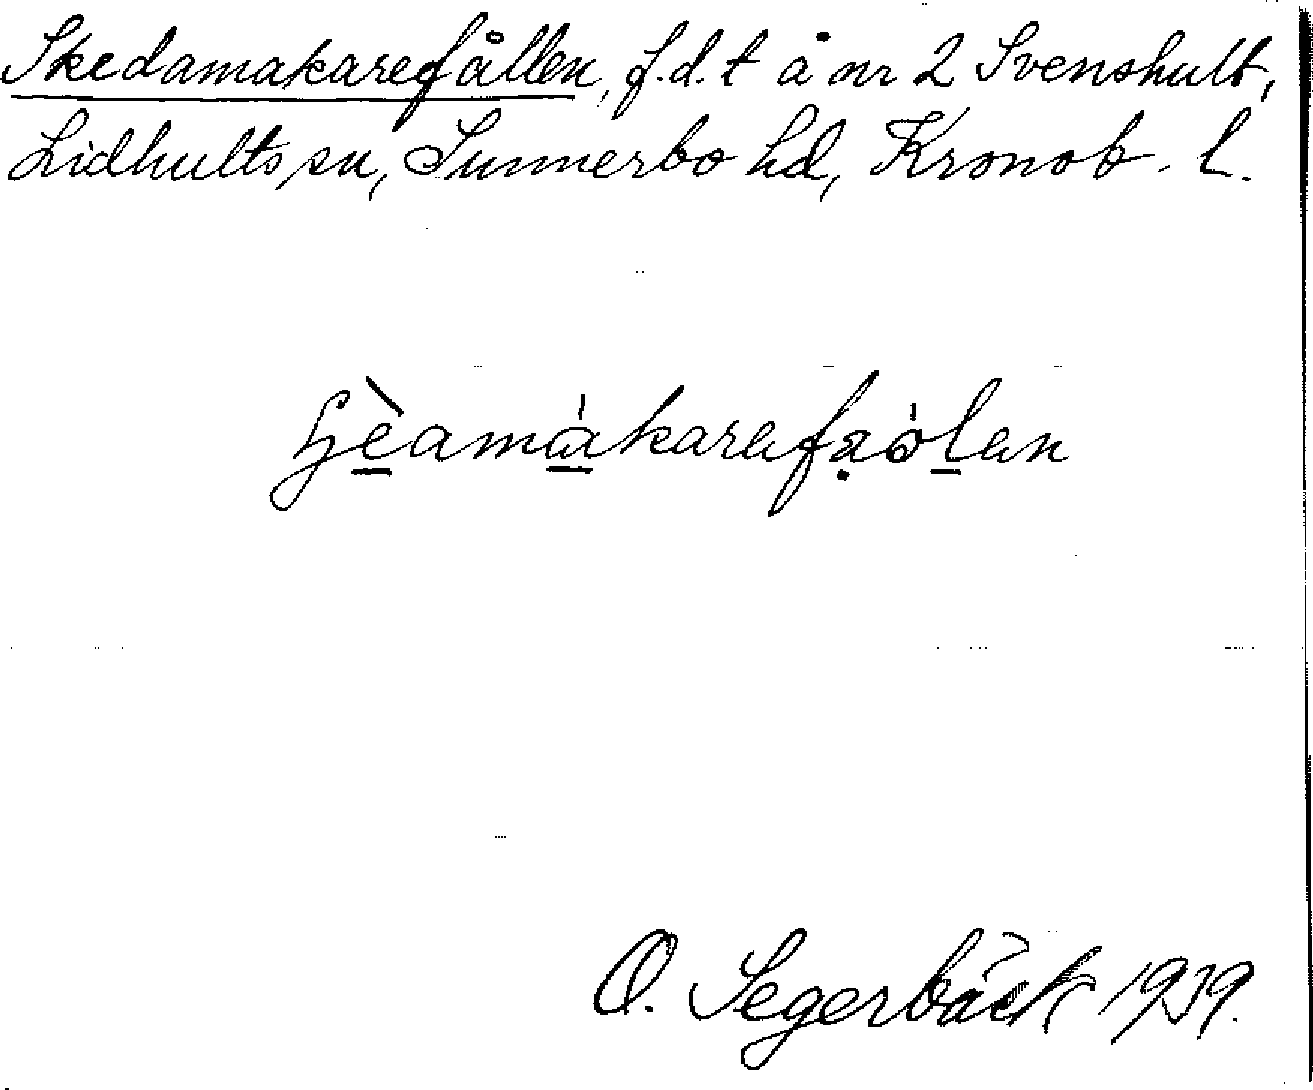 Skedamakarefållen, f.d. t å nr 2 Svenshult,
Lidhults sn, Sunnerbo hd, Kronob. l.
O. Segerbäck 1939.